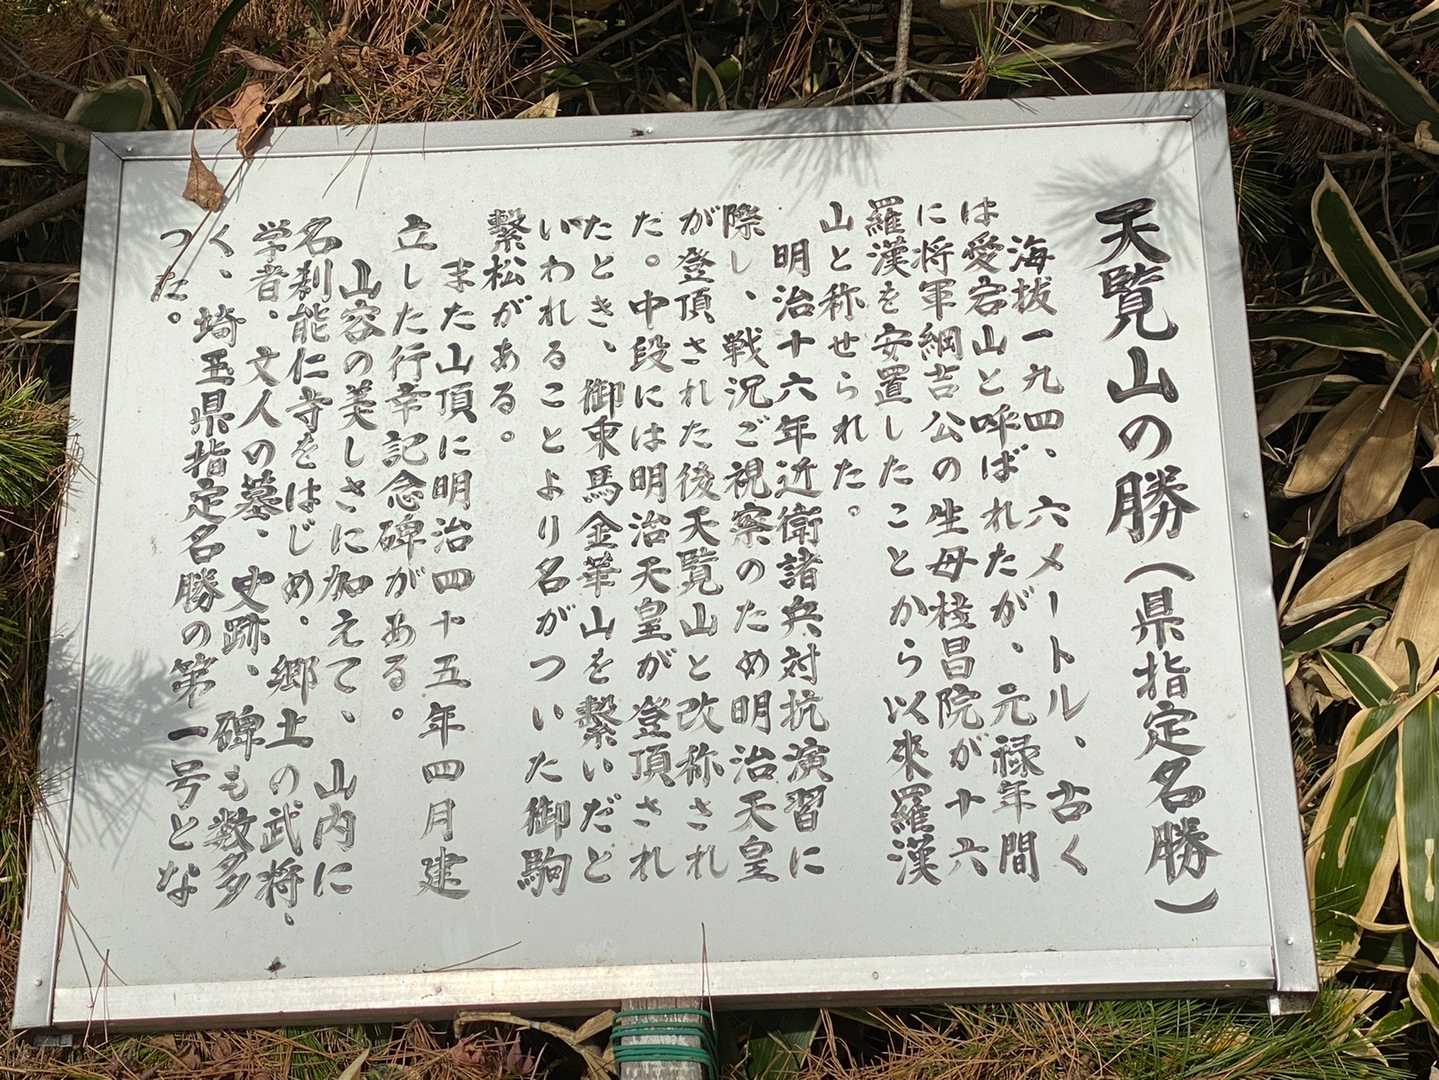 天覧山の勝(県指定名勝)
海抜一九四、六メートル、古く
は愛宕山と呼ばれたが、元禄年間
に将軍綱吉公の生母桂昌院が十六
羅漢を安置したことから以来羅漢
山と称せられた。
明治十六年近衛諸兵対抗演習に
際し、戦況ご視察のため明治天皇
が登頂された後天覧山と改称され
た。中段には明治天皇が登頂され
たとき、御乗馬金華山を繋いだと
いわれることより名がついた御駒
繋松がある。
また山頂に明治四十五年四月建
立した行幸記念碑がある。
山容の美しさに加えて、山内に
名刹能仁寺をはじめ、郷土の武将、
学者、文人の墓、史跡、碑も数多
く、埼玉県指定名勝の第一号とな
った。